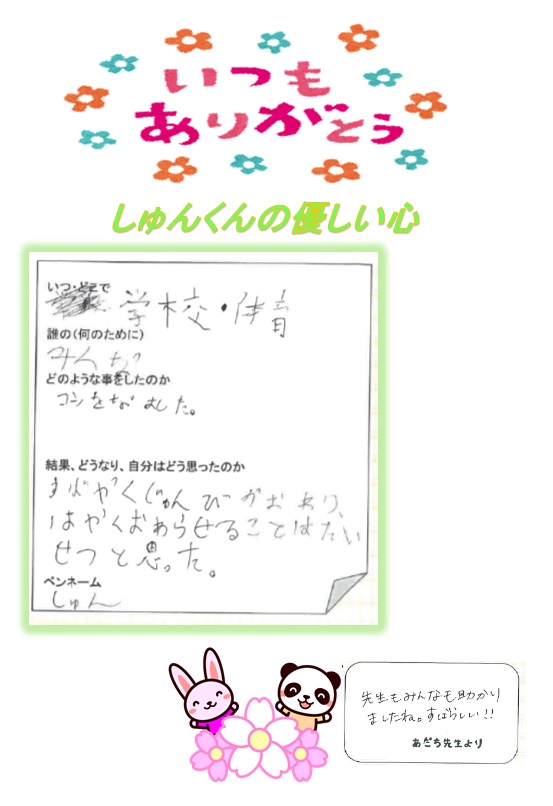 いつも
ありがとう
しゅんくんの優しい心
いつ・どこで
学校・体育
誰の(何のために)
みんな
どのような事をしたのか
コンをなおした。
結果、どうなり、自分はどう思ったのか
すばやくじゅんびがおわり、
はやくおわらせることはたい
せつと思った。
ペンネーム
しゅん
先生もみんなも助かり
ましたね。すばらしい!!
あだち先生より